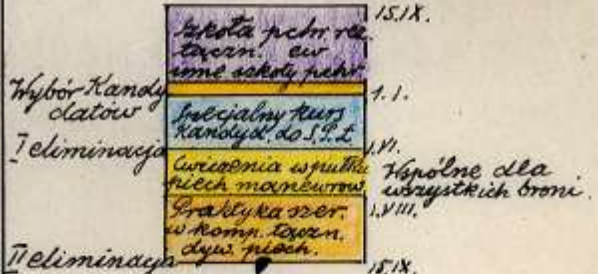 15.IX.
Szkoła pchr. rez.
łączn. ew.
inne szkoły pchr.
Wybór Kandy
datów
1.I.
Specjalny kurs
Kandyd. do S.P.Ł
I eliminacja
1.VI.
Ćwiczenia w pułku
piech manewrow.
Wspólne dla
wszystkich broni.
1.VIII.
Praktyka szer.
w komp. łączn.
dyw. piech.
II eliminacja
15.IX.